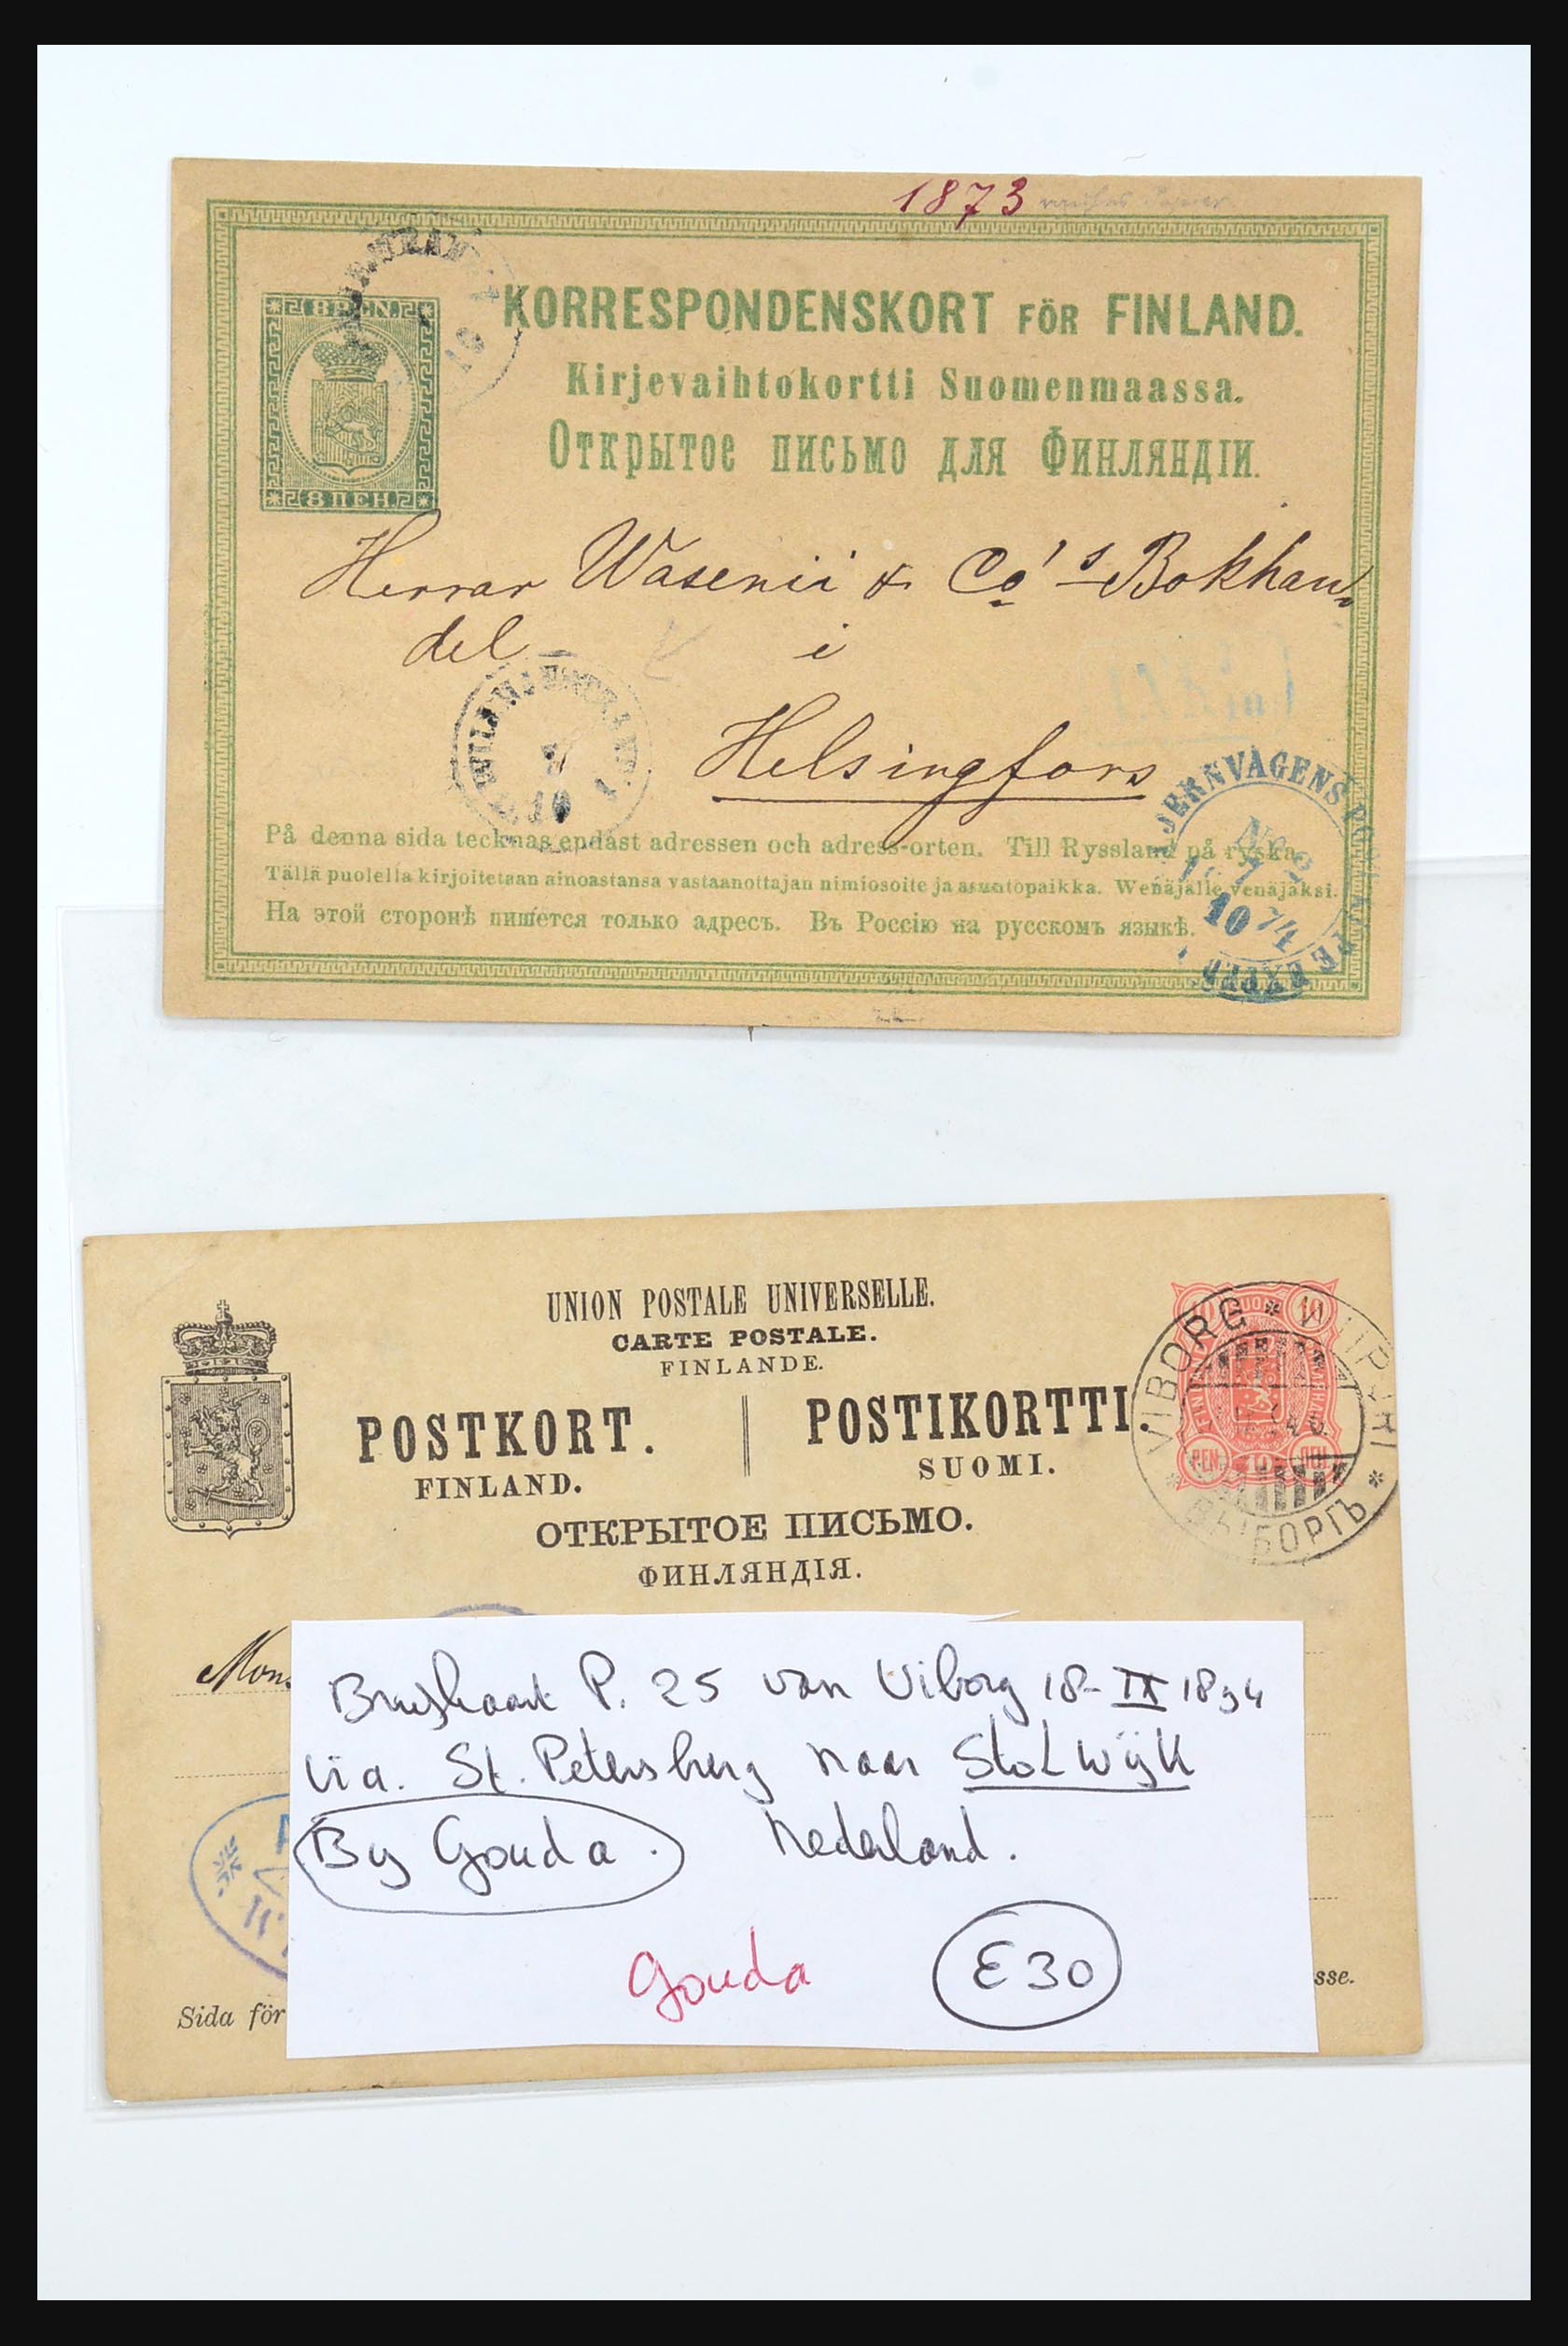 1873
8 PEN.
KORRESPONDENSKORT FÖR FINLAND.
Kirjevaihtokortti Suomenmaassa.
Открытое письмо для Финляндіи.
8 ПЕН.
Herrar Wasenii & Co's Bokhan-
del i
Helsingfors
JERNVÄGENS
No 2
10 74
EXPED
På denna sida tecknas endast adressen och adress-orten. Till Ryssland på ryska.
Tällä puolella kirjoitetaan ainoastansa vastaanottajan nimiosoite ja asuntopaikka. Wenäjälle venäjäksi.
На этой сторонѣ пишется только адресъ. Въ Россію на русскомъ языкѣ.
UNION POSTALE UNIVERSELLE.
CARTE POSTALE.
FINLANDE.
POSTKORT. POSTIKORTTI.
FINLAND. SUOMI.
ОТКРЫТОЕ ПИСЬМО.
ФИНЛЯНДІЯ.
10 10
PEN. 10
VIBORG * WIIPURI * ВЫБОРГЪ *
Mons
Briefkaart P. 25 van Viborg 18-IX 1894
via. St. Petersburg naar Stolwijk
By Gouda. Nederland.
Gouda E30
sse.
Sida för